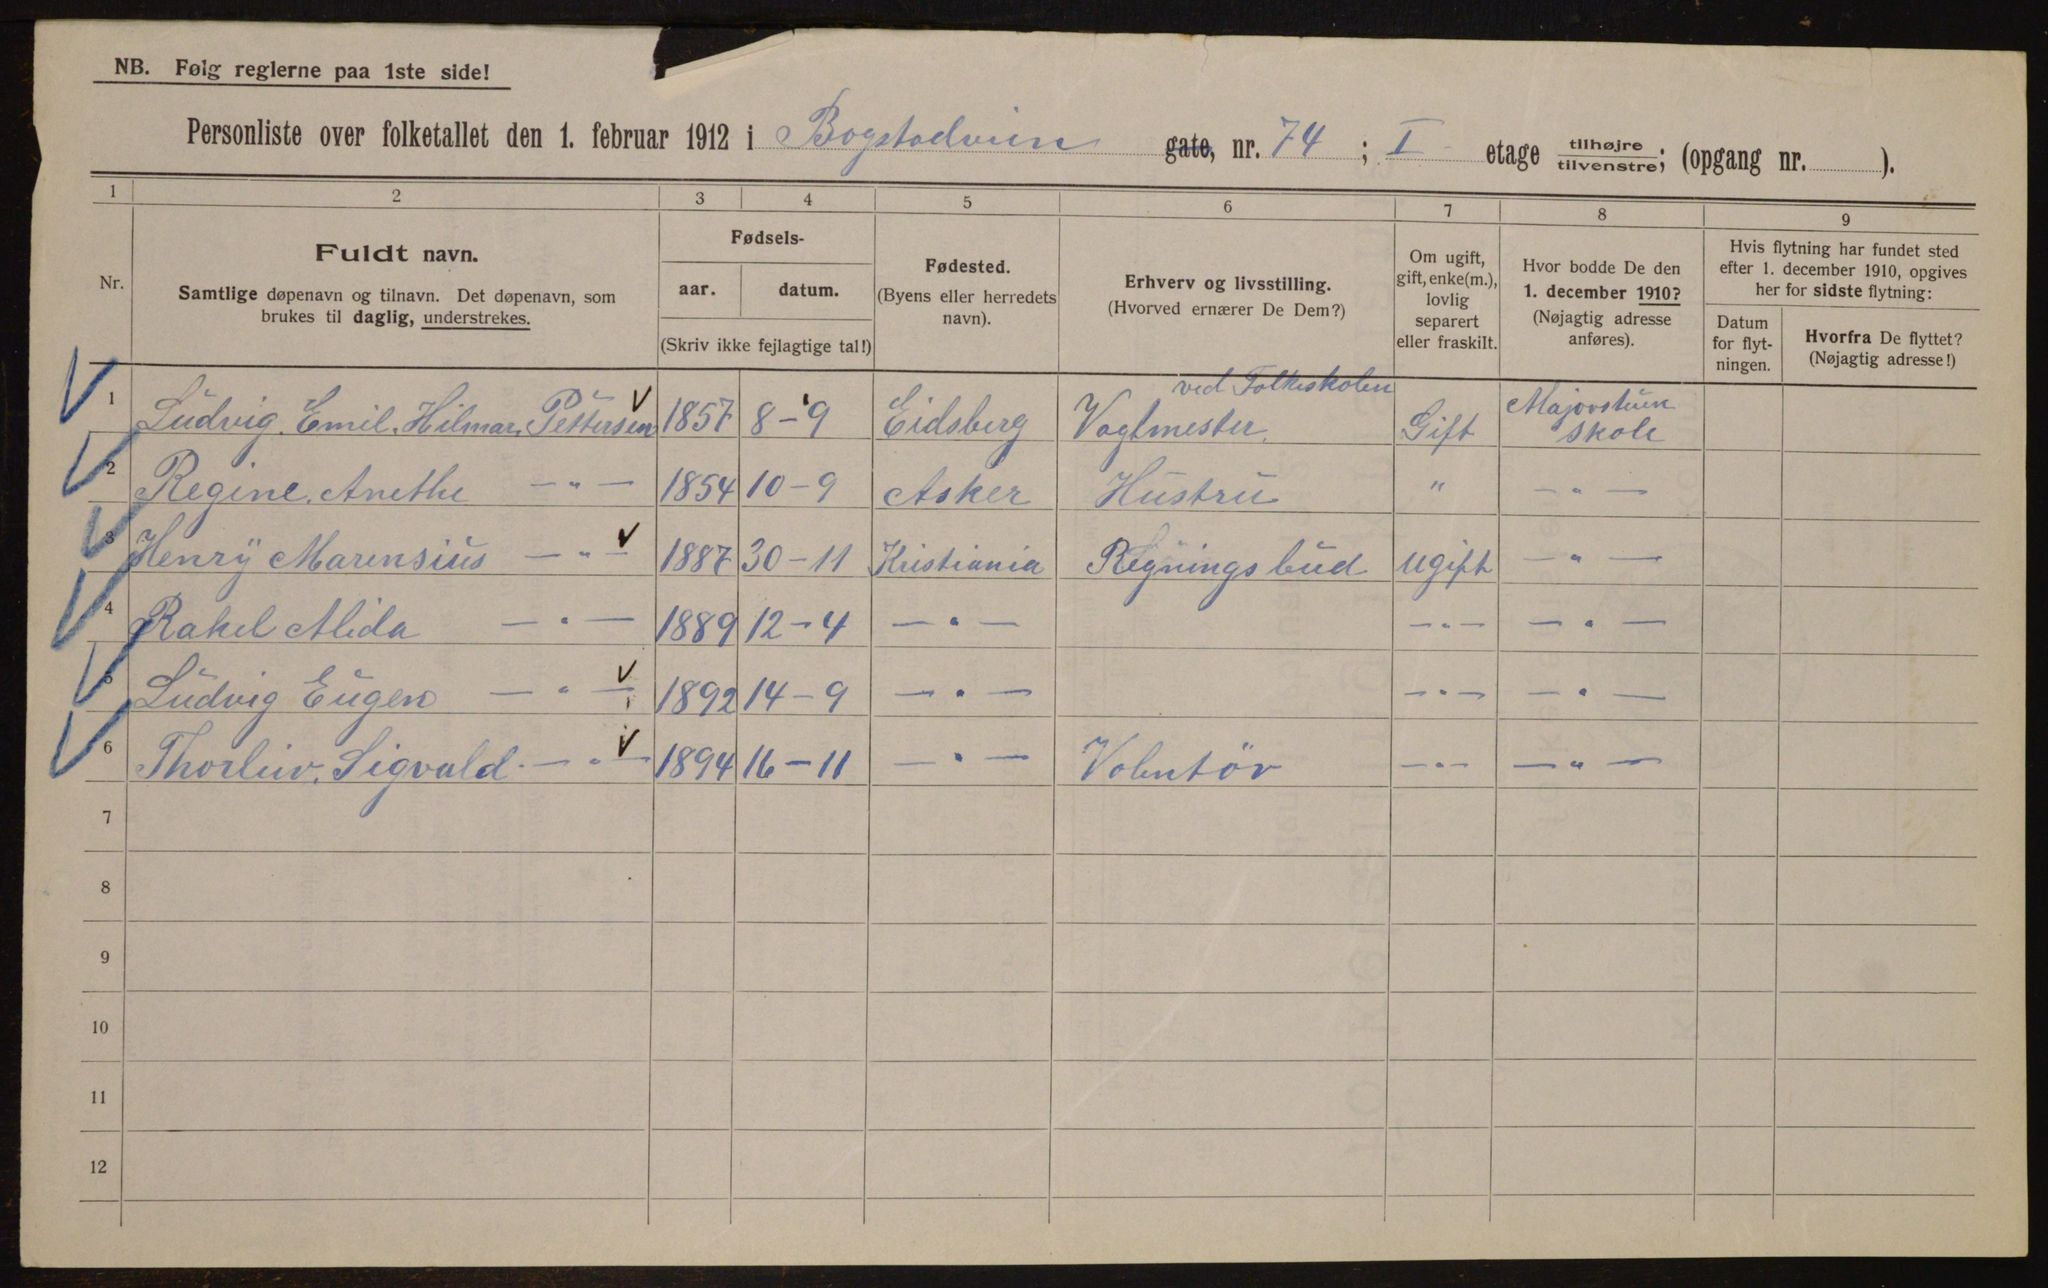 NB. Følg reglerne paa 1ste side!
Personliste over folketallet den 1. februar 1912 i Bogstadveien gate, nr. 74 ; I etage tilhøjre/tilvenstre; (opgang nr. ).
1 2 3 4 5 6 7 8 9
Nr.
Fuldt navn.
Samtlige døpenavn og tilnavn. Det døpenavn, som
brukes til daglig, understrekes.
Fødsels-
aar. datum.
(Skriv ikke fejlagtige tal!)
Fødested.
(Byens eller herredets
navn).
Erhverv og livsstilling.
(Hvorved ernærer De Dem?)
Om ugift,
gift, enke(m.),
lovlig
separert
eller fraskilt.
Hvor bodde De den
1. december 1910?
(Nøjagtig adresse
anføres).
Hvis flytning har fundet sted
efter 1. december 1910, opgives
her for sidste flytning:
Datum
for flyt-
ningen.
Hvorfra De flyttet?
(Nøjagtig adresse!)
1 Ludvig. Emil. Hilmar. Pettersen 1857 8-9 Eidsberg Vagtmester. ved Folkeskolen Gift Majorstuen Skole
2 Regine. Anethe — " — 1854 10-9 Asker Hustru " — " —
3 Henry Marensius — " — 1887 30-11 Kristiania Regningsbud ugift — " —
4 Rakel Alida — " — 1889 12-4 — " — — " — — " —
5 Ludvig Eugen — " — 1892 14-9 — " — — " — — " —
6 Thorleiv. Sigvald — " — 1894 16-11 — " — Volentör — " — — " —
7
8
9
10
11
12